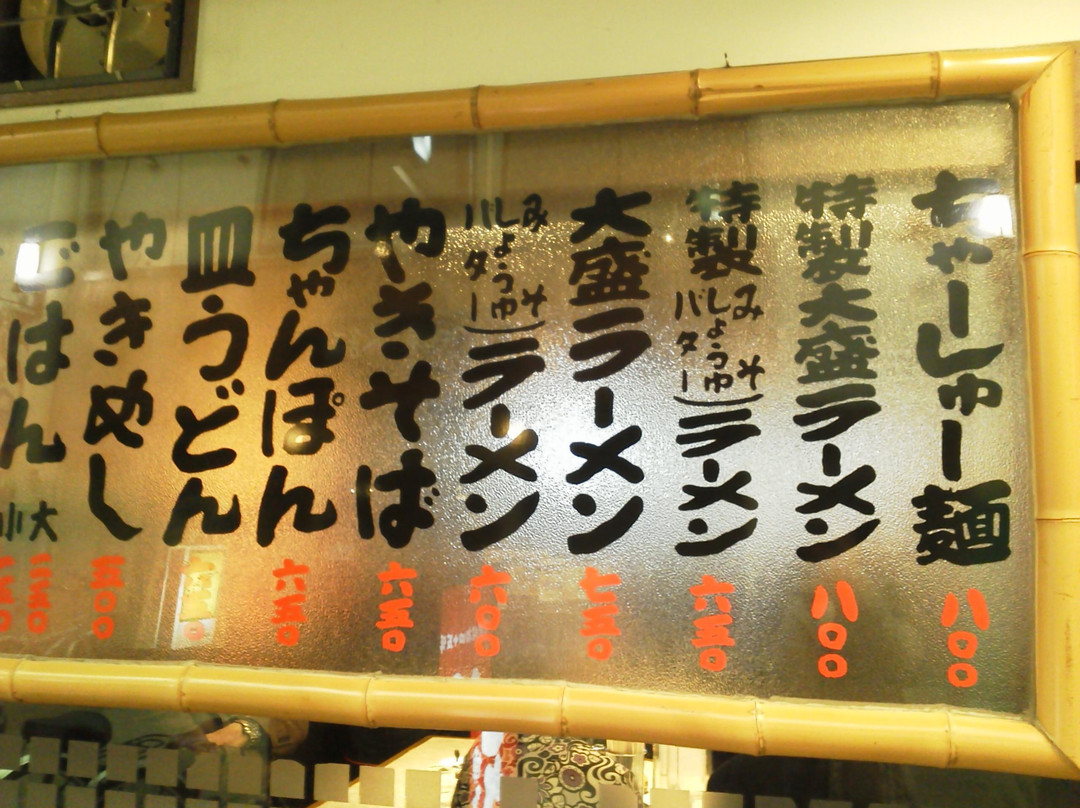 ちゃーしゅー麺 八〇〇
特製大盛ラーメン 八〇〇
特製(みそ しょうゆ バター)ラーメン 六五〇
大盛ラーメン 七五〇
(みそ しょうゆ バター)ラーメン 六〇〇
やきそば 六五〇
ちゃんぽん 六五〇
皿うどん
やきめし 五〇〇
ごはん 大 二五〇
小